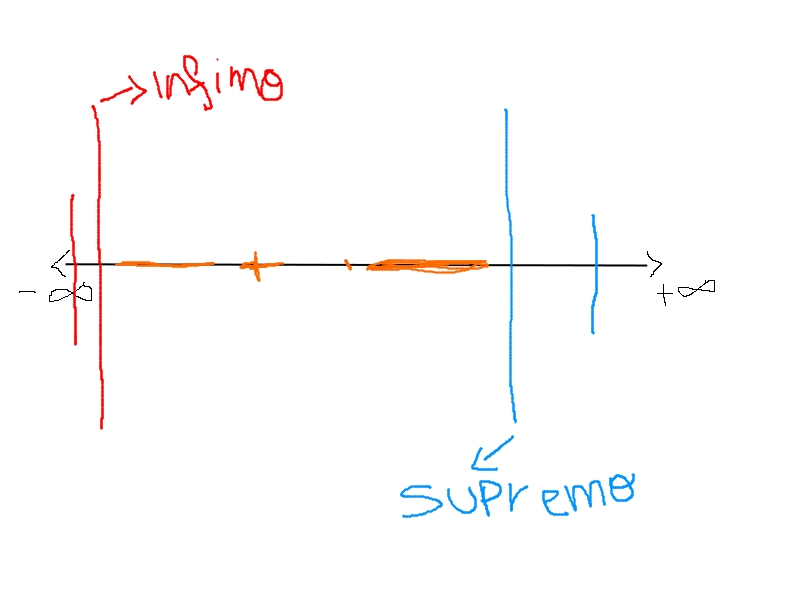 Infimo
- ∞
+ ∞
Supremo